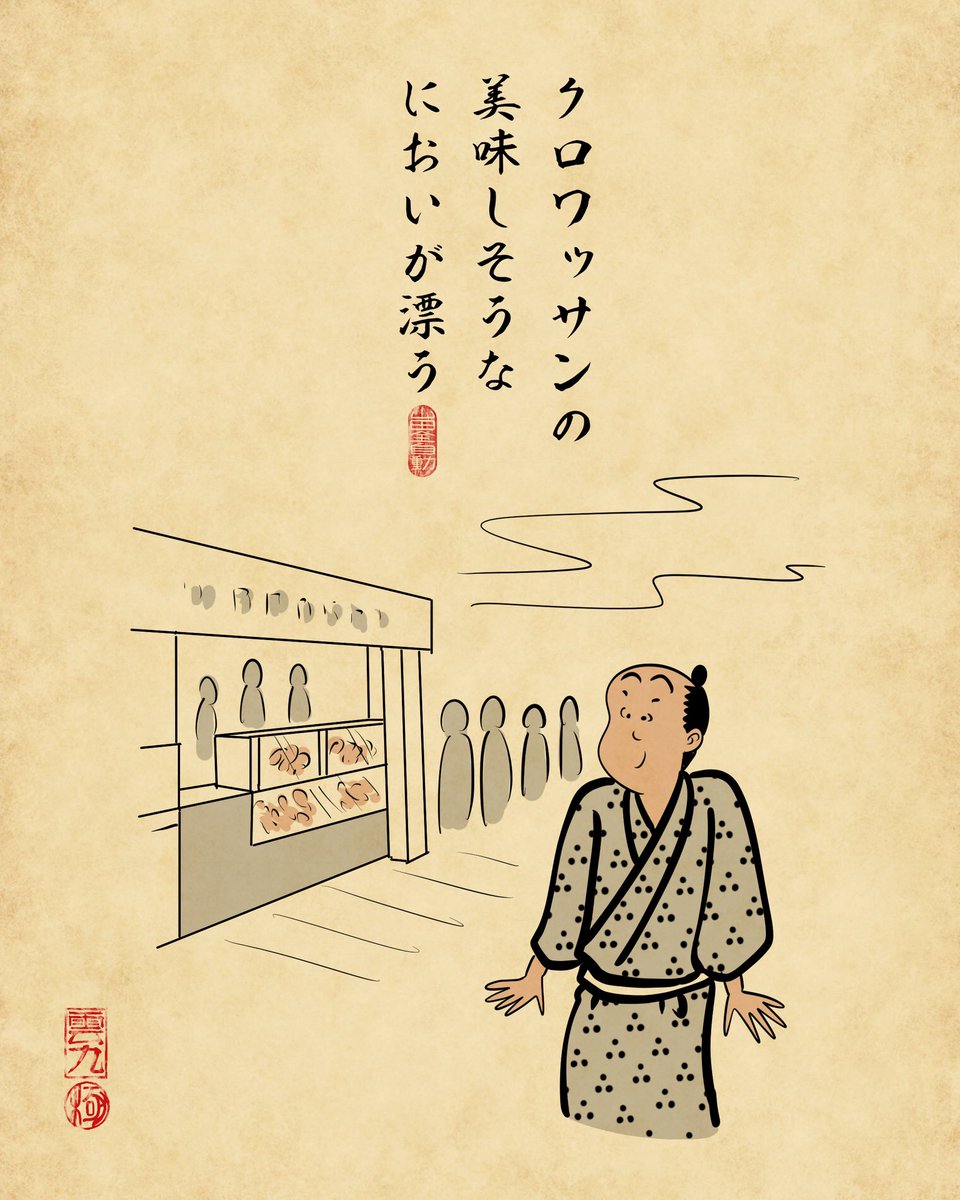 クロワッサンの
美味しそうな
においが漂う